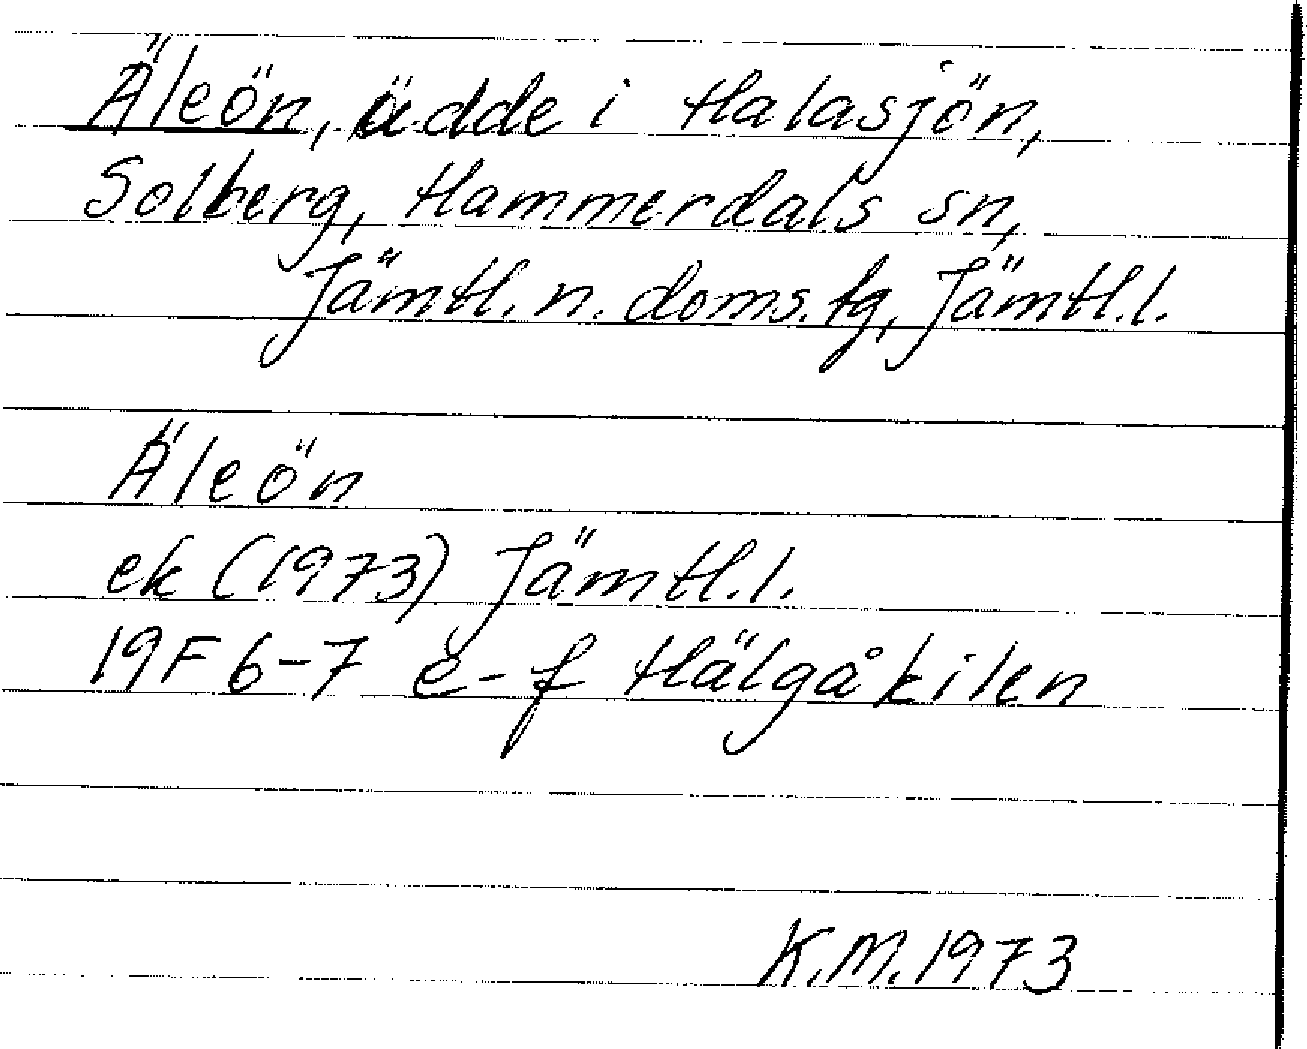 Äleön, ädde i Halasjön,
Solberg, Hammerdals sn,
Jämtl. n. doms. tg, Jämtl.l.
Äleön
ek (1973) Jämtl.l.
19F 6-7 e-f Hälgåkilen
K.M. 1973